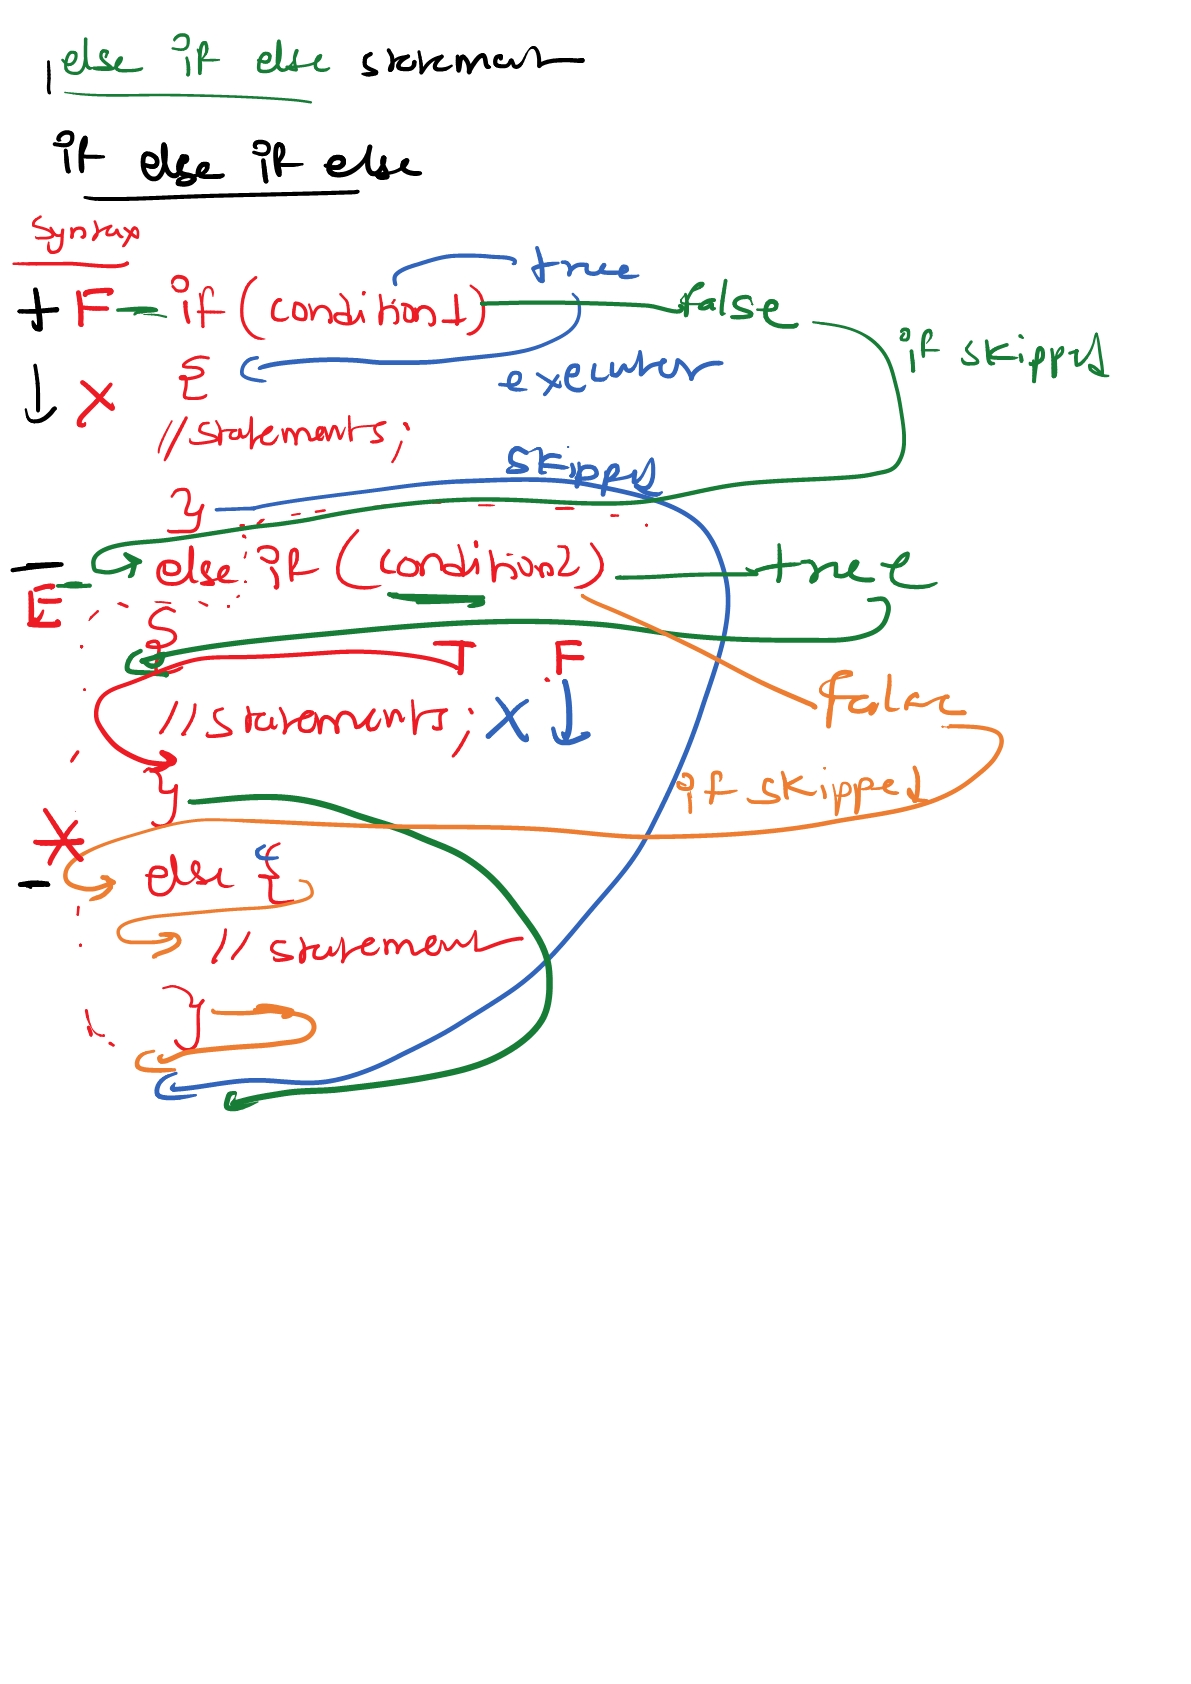 else if else statement
if else if else
Syntax
true
+ F - if (condition1) false
if skipped
↓ X {
executes
// statements;
skipped
}
- E - else if (condition2) true
{
T F
// statements; X ↓
false
}
if skipped
X
- else {
// statement
}